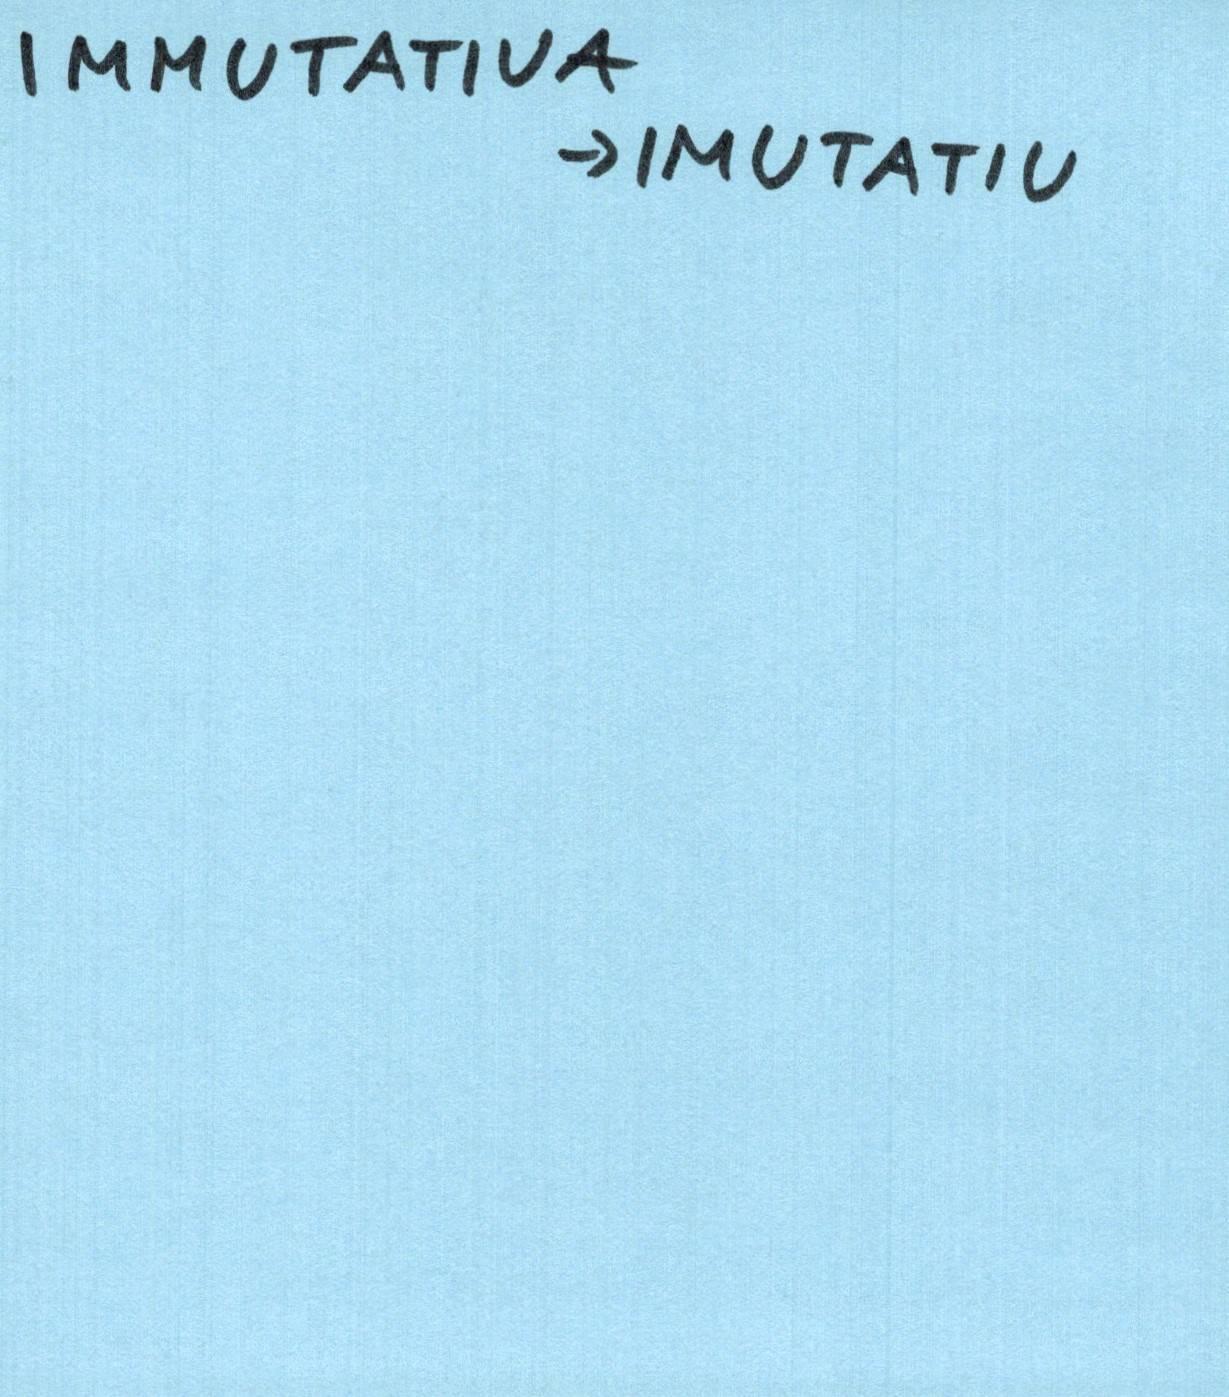 IMMUTATIUA
→IMUTATIU